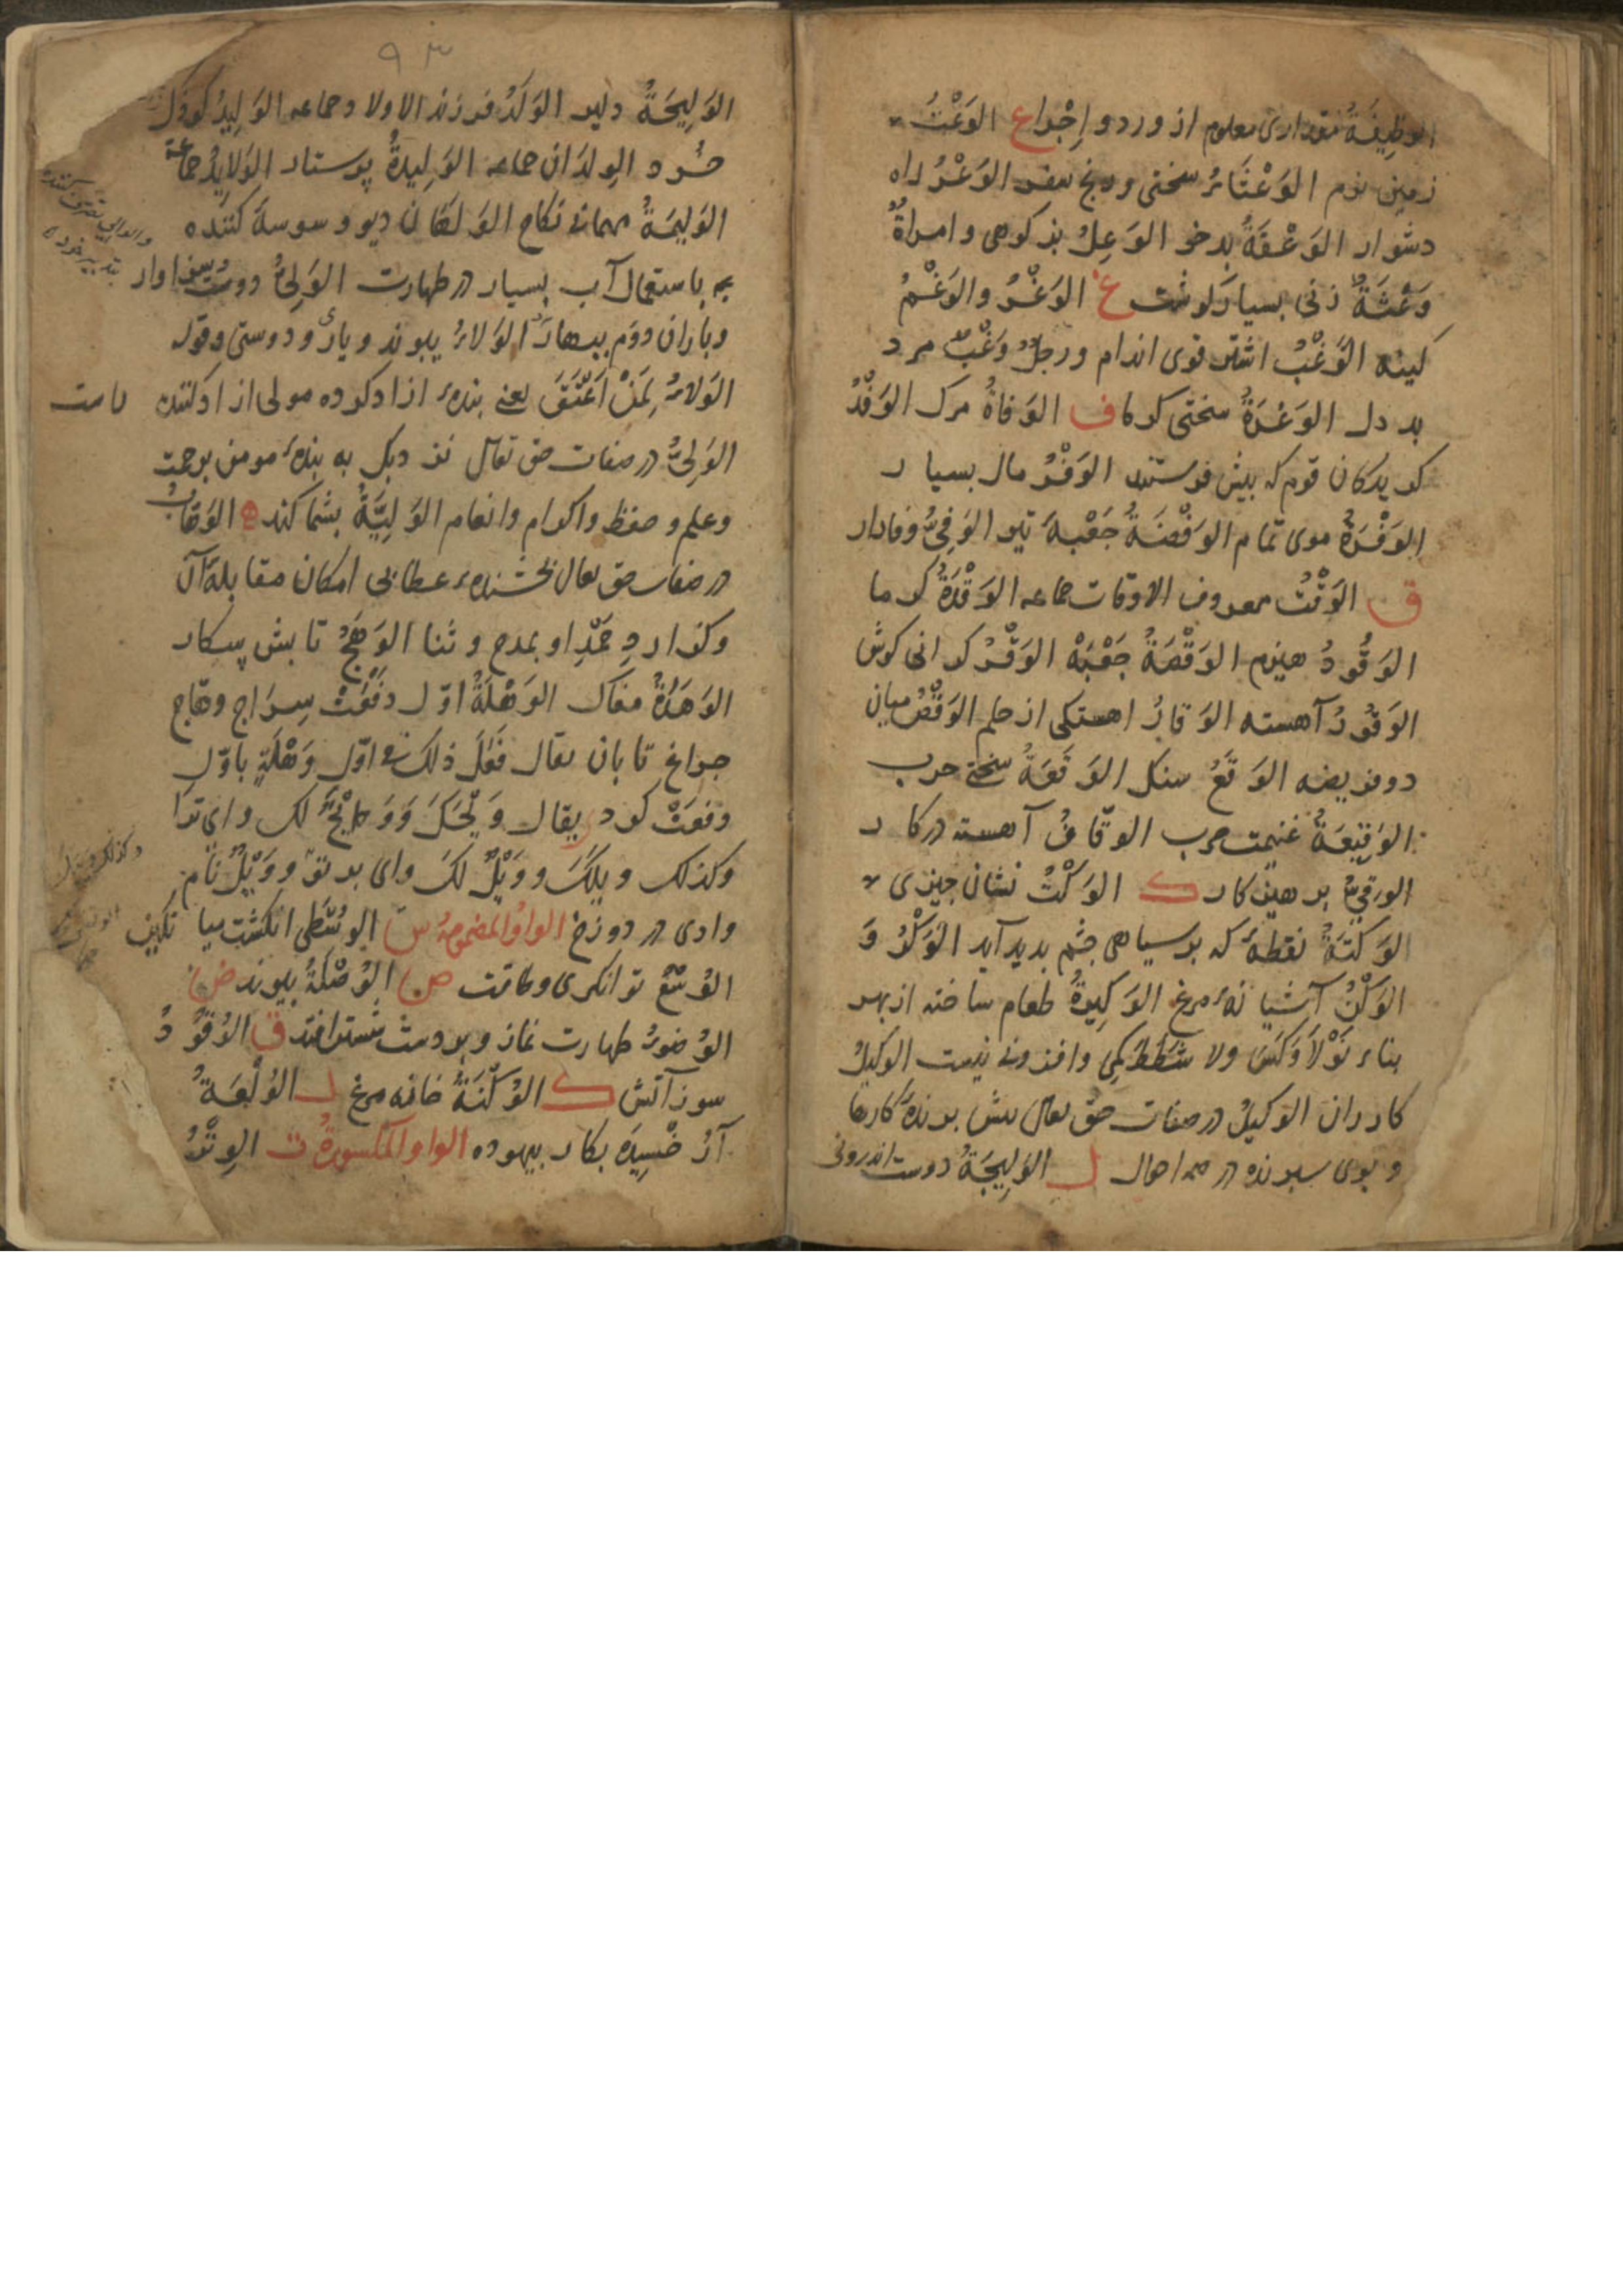 الوَظِيفَةُ مقداری معلوم از ورد و اِجْرا ع الوَعْثُ
زمین نرم الوَعْثَاءُ سختی و رنج سفر الوَعْرُ راه
دشوار الوَعْقَةُ بدخو الوَعِلُ بز کوهی و امراةٌ
وَعْثَةٌ زنی بسیار کوشت غ الوَغْرُ والوَغْمُ
کینه الوَغْبُ اشتر قوی اندام و رجلٌ وَغْبٌ مرد
بد دل الوَغْرَةُ سختی کرما ف الوَفاةُ مرک الوَفْدُ
کزیدکان قوم که پیش فرستند الوَفْرُ مال بسیار
الوَفْرَةُ موی تمام الوَفْضَةُ جَعْبهٔ تیر الوَفِیُّ وفادار
ق الوَقْتُ معروف الاوقات جماعه الوَقْدَةُ کرما
الوَقُودُ هیزم الوَقْصَةُ جَعْبَهْ الوَقْرُ کرانی کوش
الوَقُورُ آهسته الوَقارُ اهستکی از حلم الوَقْصُ میان
دو فریضه الوَقَعُ سنک الوَقعَةُ سختی حرب
الوَقِیعَةُ غنیمت حرب الوقّافُ آهسته در کار
کار ک الوَکْتُ نشان چیزی
الوَکْتَةُ نقطهٔ که بر سیاهی چشم پدید آید الوَکْرُ وَ
الوَکْنُ آشیانهٔ مرغ الوَکِیرَةُ طعام ساخته از بهر
بناء لاوَکسَ ولا شَطَطَ کمی و افزونی نیست الوکیلُ
کاردان الوکیلُ در صفات حق تعالی برندهٔ کارها
در همه احوال ل الوَلِیجَةُ دوست اندرونی
۹۳
الوَلِیجَةُ الوَلَدُ فرزند الاولاد جماعه الوَلِیدُ کودک
خُرد الوِلدَان جماعه الوَلِیدَةُ پرستار الوَلایدُ جماعة
الوَلِیمَةُ مهمانی نکاح الوَلَهَان دیو وسوسه کننده
به باستعمال آب بسیار در طهارت الوَلِیُّ دوست و سزاوار
و باران دوم ببهار الوَلاءُ پیوند و یاری و دوستی و قوله
الوَلاءُ لِمَنْ اَعْتَقَ یعنی بندهٔ ازاد کرده مولی ازاد کننده راست
الوَلِیُّ در صفات حق تعالی نزدیک به بندهٔ مومن برحمت
و علم و حفظ و اکرام و انعام الوَلِیَّةُ ه الوَهّابُ
در صفات حق تعالی بخشندهٔ عطا بی امکان مقابلهٔ آن
و کزارد حَمْدِ او بمدح و ثنا الوَهَجُ تابش
الوَهْدَةُ مغاک الوَهْلَةُ اوّل دفْعَتْ سِرَاج وهّاج
چراغ تابان یقال فَعَلَ ذلک فی اوّل وَهْلَةٍ باوّل
دفعَتْ کرد ی یقال وَیْحَکَ وَ وَیْحٌ لک وای ترا
وکذلک ویلَکَ و وَیْلٌ لکَ وای بر تو و وَیْلٌ نام
وادی در دوزخ الواوُ المضمومهُ س الوسْطَی انکشت میانکین
الوُسْعُ توانکری و طاقت ص الوُصْلَةُ پیوند ض
الوُضوءُ طهارت نماز ق الوُقُودُ
سوز آتش ک الوُکْنَةُ خانه مرغ ل الوُلْعَةُ
بکار بیهوده الواو المکسورةُ ت الوِتْرُ